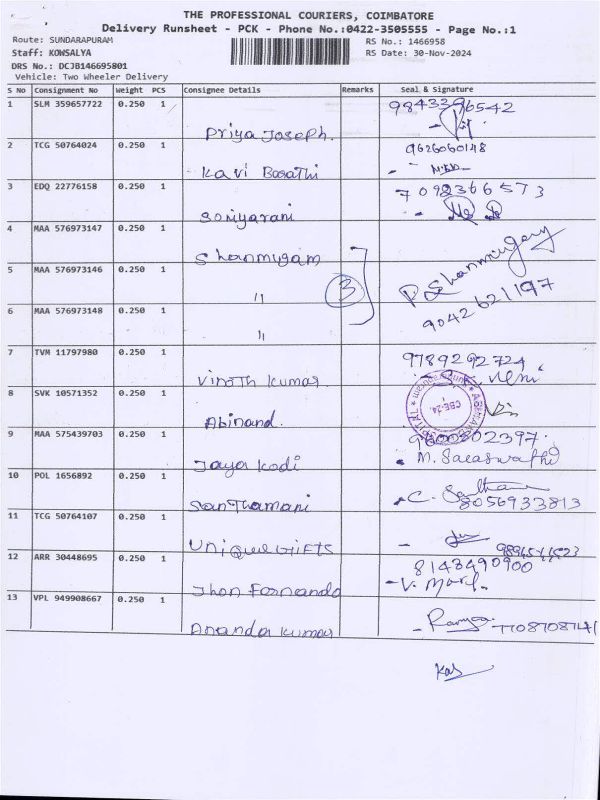 THE PROFESSIONAL COURIERS, COIMBATORE
Delivery Runsheet - PCK - Phone No.:0422-3505555 - Page No.:1
Route: SUNDARAPURAM
RS No.: 1466958
Staff: KOWSALYA
RS Date: 30-Nov-2024
DRS No.: DCJB146695801
Vehicle: Two Wheeler Delivery
S No Consignment No Weight PCS Consignee Details Remarks Seal & Signature
1 SLM 359657722 0.250 1 Priya Joseph. 9843396542
2 TCG 50764024 0.250 1 Kavi Barathi 9626060148
3 EDQ 22776158 0.250 1 Soniyarani 7092366573
4 MAA 576973147 0.250 1 Shanmugam P. Shanmugam
5 MAA 576973146 0.250 1 " 3 9042621197
6 MAA 576973148 0.250 1 "
7 TVM 11797980 0.250 1 Vinoth Kumar 9789292724
8 SVK 10571352 0.250 1 Abinand.
9 MAA 575439703 0.250 1 Jaya Kodi M. Saraswathi
10 POL 1656892 0.250 1 Santhamani 8056933813
11 TCG 50764107 0.250 1 Unique Gifts
12 ARR 30448695 0.250 1 Jhon Fernando 8148490900
13 VPL 949908667 0.250 1 Ananda Kumar 7708708741